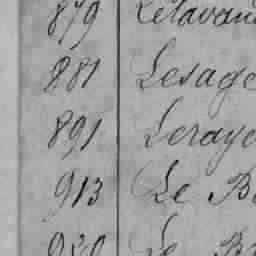 879 Letavan
881 Lesage
891 Leray
913 Le B
920 Le B